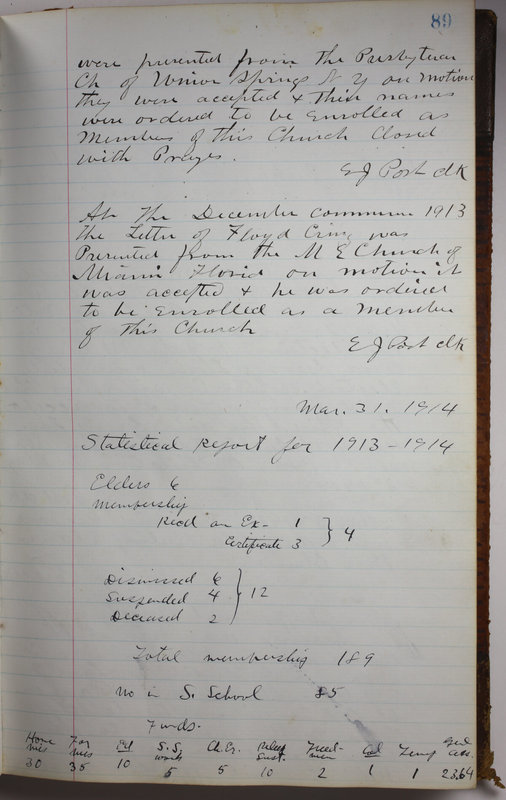 89
were presented from the Presbyterian
Ch of Union Springs N Y on motion
they were accepted & their names
were ordered to be Enrolled as
Members of this Church Closed
with Prayer.
E J Post clk
At The December commun 1913
the Letter of Floyd was
Presented from the M E Church of
Miami Florid on motion it
was accepted & he was ordered
to be Enrolled as a member
of this Church
E J Post clk
Mar. 31. 1914
Statistical report for 1913-1914
Elders 6
Membership
Recd on Ex- 1
Certificate 3 } 4
Dismissed 6
Suspended 4 } 12
Deceased 2
Total membership 189
No in S. School 85
Funds.
Home Mis For Mis Ed S.S. work Ch. Er. Relief Sust. Freed-men Col Temp Gen ass.
30 35 10 5 5 10 2 1 1 23.64